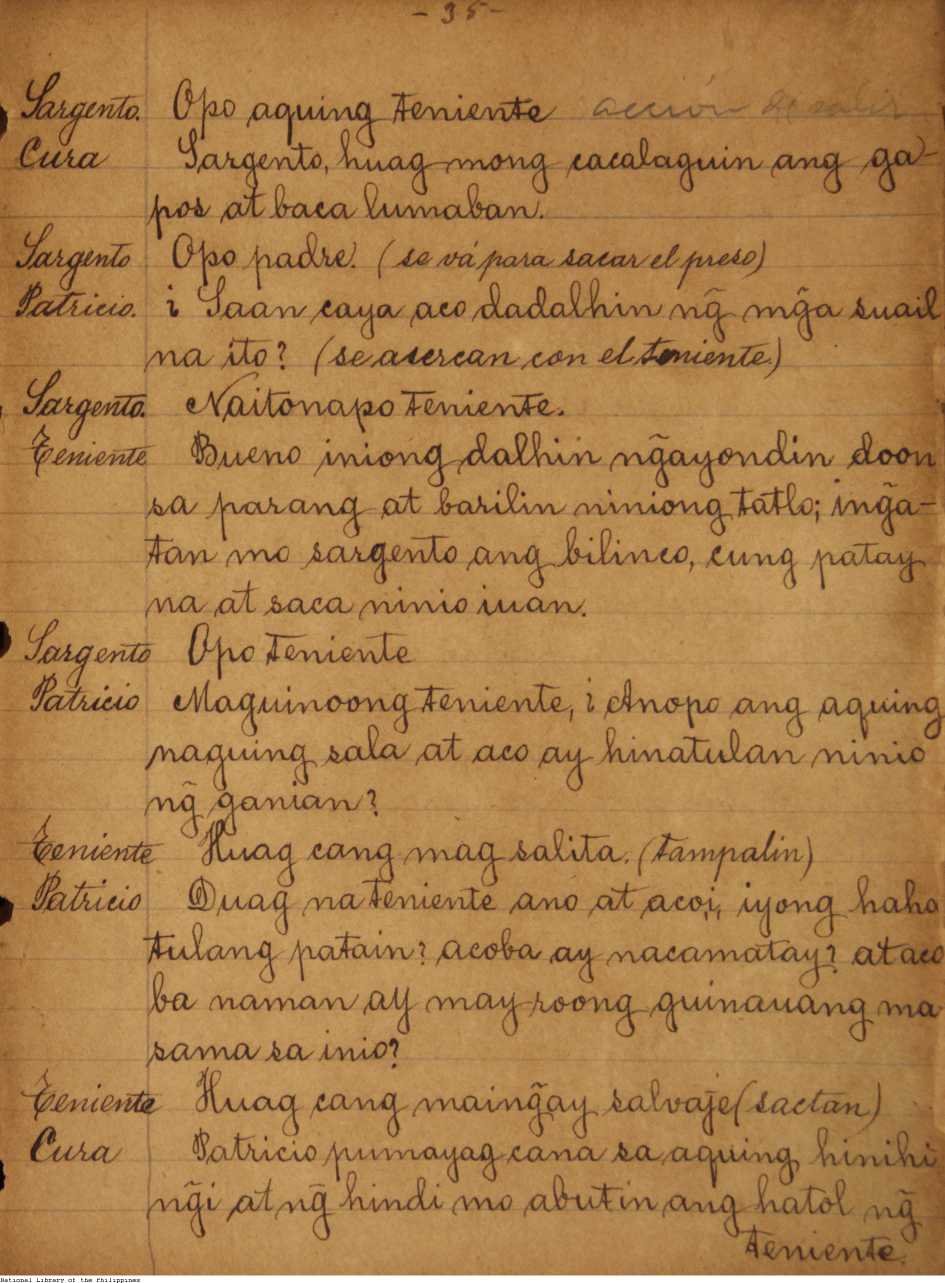 - 35 -
Sargento. Opo aquing teniente acción de salir
Cura Sargento, huag mong cacalaguin ang ga-
pos at baca lumaban.
Sargento Opo padre. (se vá para sacar el preso)
Patricio. ¿ Saan caya aco dadalhin ng̃ mg̃a suail
na ito? (se asercan con el teniente)
Sargento. Naitonapo teniente.
Teniente Bueno iniong dalhin ng̃ayondin doon
sa parang at barilin niniong tatlo; ing̃a-
tan mo sargento ang bilinco, cung patay
na at saca ninio iuan.
Sargento Opo teniente
Patricio Maguinoong teniente, ¿ Anopo ang aquing
naguing sala at aco ay hinatulan ninio
ng̃ ganian?
Teniente Huag cang mag salita. (tampalin)
Patricio Duag na teniente ano at acoi, iyong haha
tulang patain? acoba ay nacamatay? at aco
ba naman ay may roong guinauang ma
sama sa inio?
Teniente Huag cang maing̃ay salvaje (sactan)
Cura Patricio pumayag cana sa aquing hinihi
ng̃i at ng̃ hindi mo abutin ang hatol ng̃
teniente.
National Library of the Philippines